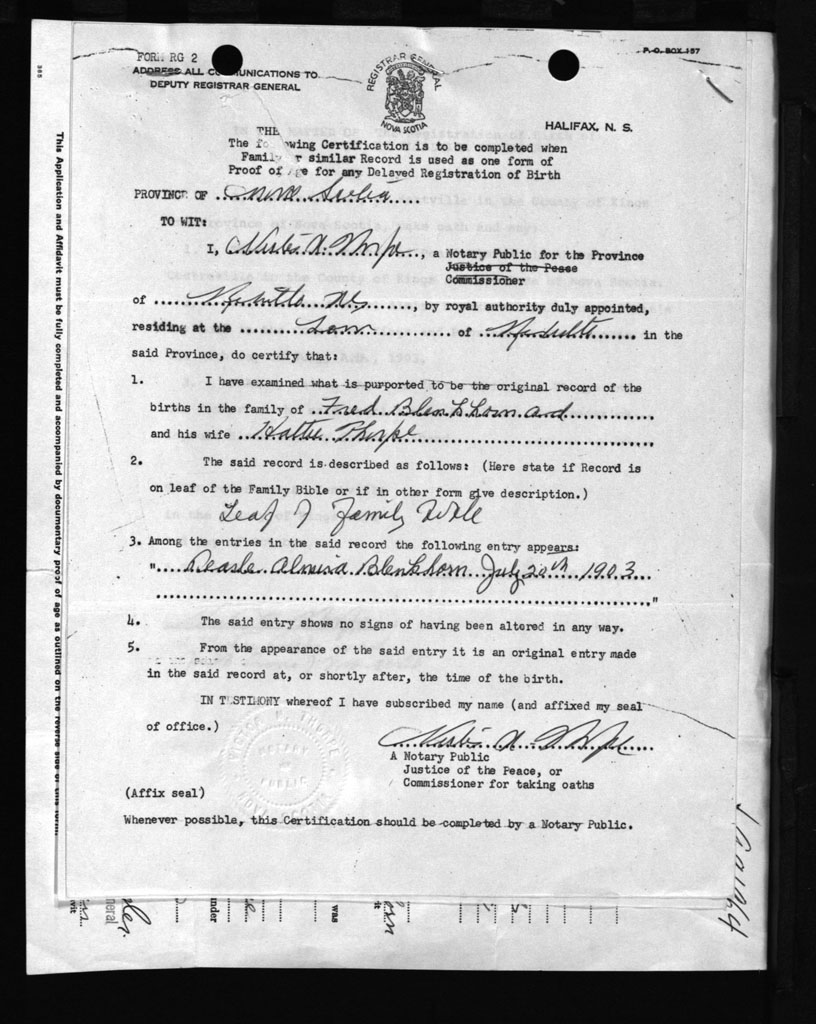 FORM RG 2
P. O. BOX 157
ADDRESS ALL COMMUNICATIONS TO
DEPUTY REGISTRAR GENERAL
REGISTRAR GENERAL
NOVA SCOTIA
HALIFAX, N. S.
THE
The following Certification is to be completed when
Family or similar Record is used as one form of
Proof of Age for any Delayed Registration of Birth
PROVINCE OF Nova Scotia
TO WIT:
I, Thorpe, a Notary Public for the Province
Justice of the Peace
Commissioner
of NS, by royal authority duly appointed,
residing at the Town of in the
said Province, do certify that:
1. I have examined what is purported to be the original record of the
births in the family of Fred Blenkhorn and
and his wife Hattie Thorpe
2. The said record is described as follows: (Here state if Record is
on leaf of the Family Bible or if in other form give description.)
Leaf of Family Bible
3. Among the entries in the said record the following entry appears:
" Blenkhorn July 20th 1903
"
4. The said entry shows no signs of having been altered in any way.
5. From the appearance of the said entry it is an original entry made
in the said record at, or shortly after, the time of the birth.
IN TESTIMONY whereof I have subscribed my name (and affixed my seal
of office.)
Thorpe
A Notary Public
Justice of the Peace, or
Commissioner for taking oaths
NOTARY
PUBLIC
NOVA SCOTIA
(Affix seal)
Whenever possible, this Certification should be completed by a Notary Public.
This Application and Affidavit must be fully completed and accompanied by documentary proof of age as outlined on the reverse side of this form.
under
was